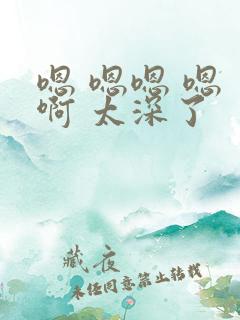 嗯 嗯嗯 嗯
啊 太深了
藏夜
未经同意禁止转载